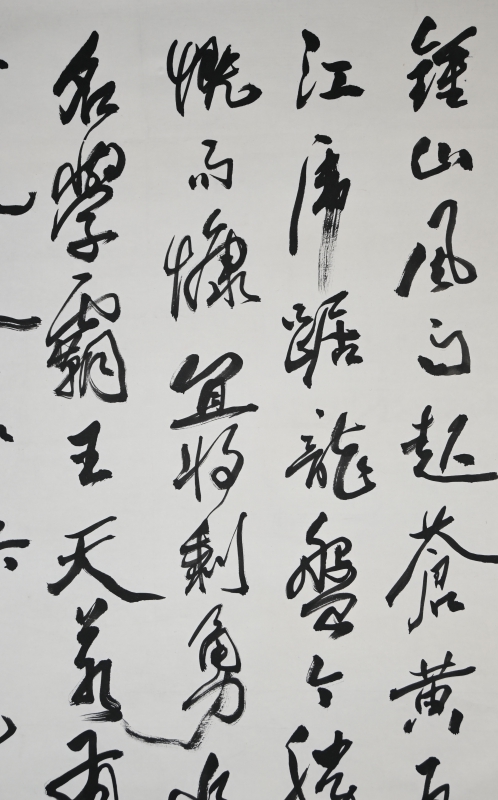 鍾山風雨起蒼黃百
江虎踞龍盤今勝
慨而慷宜將剩勇
名學霸王天若有